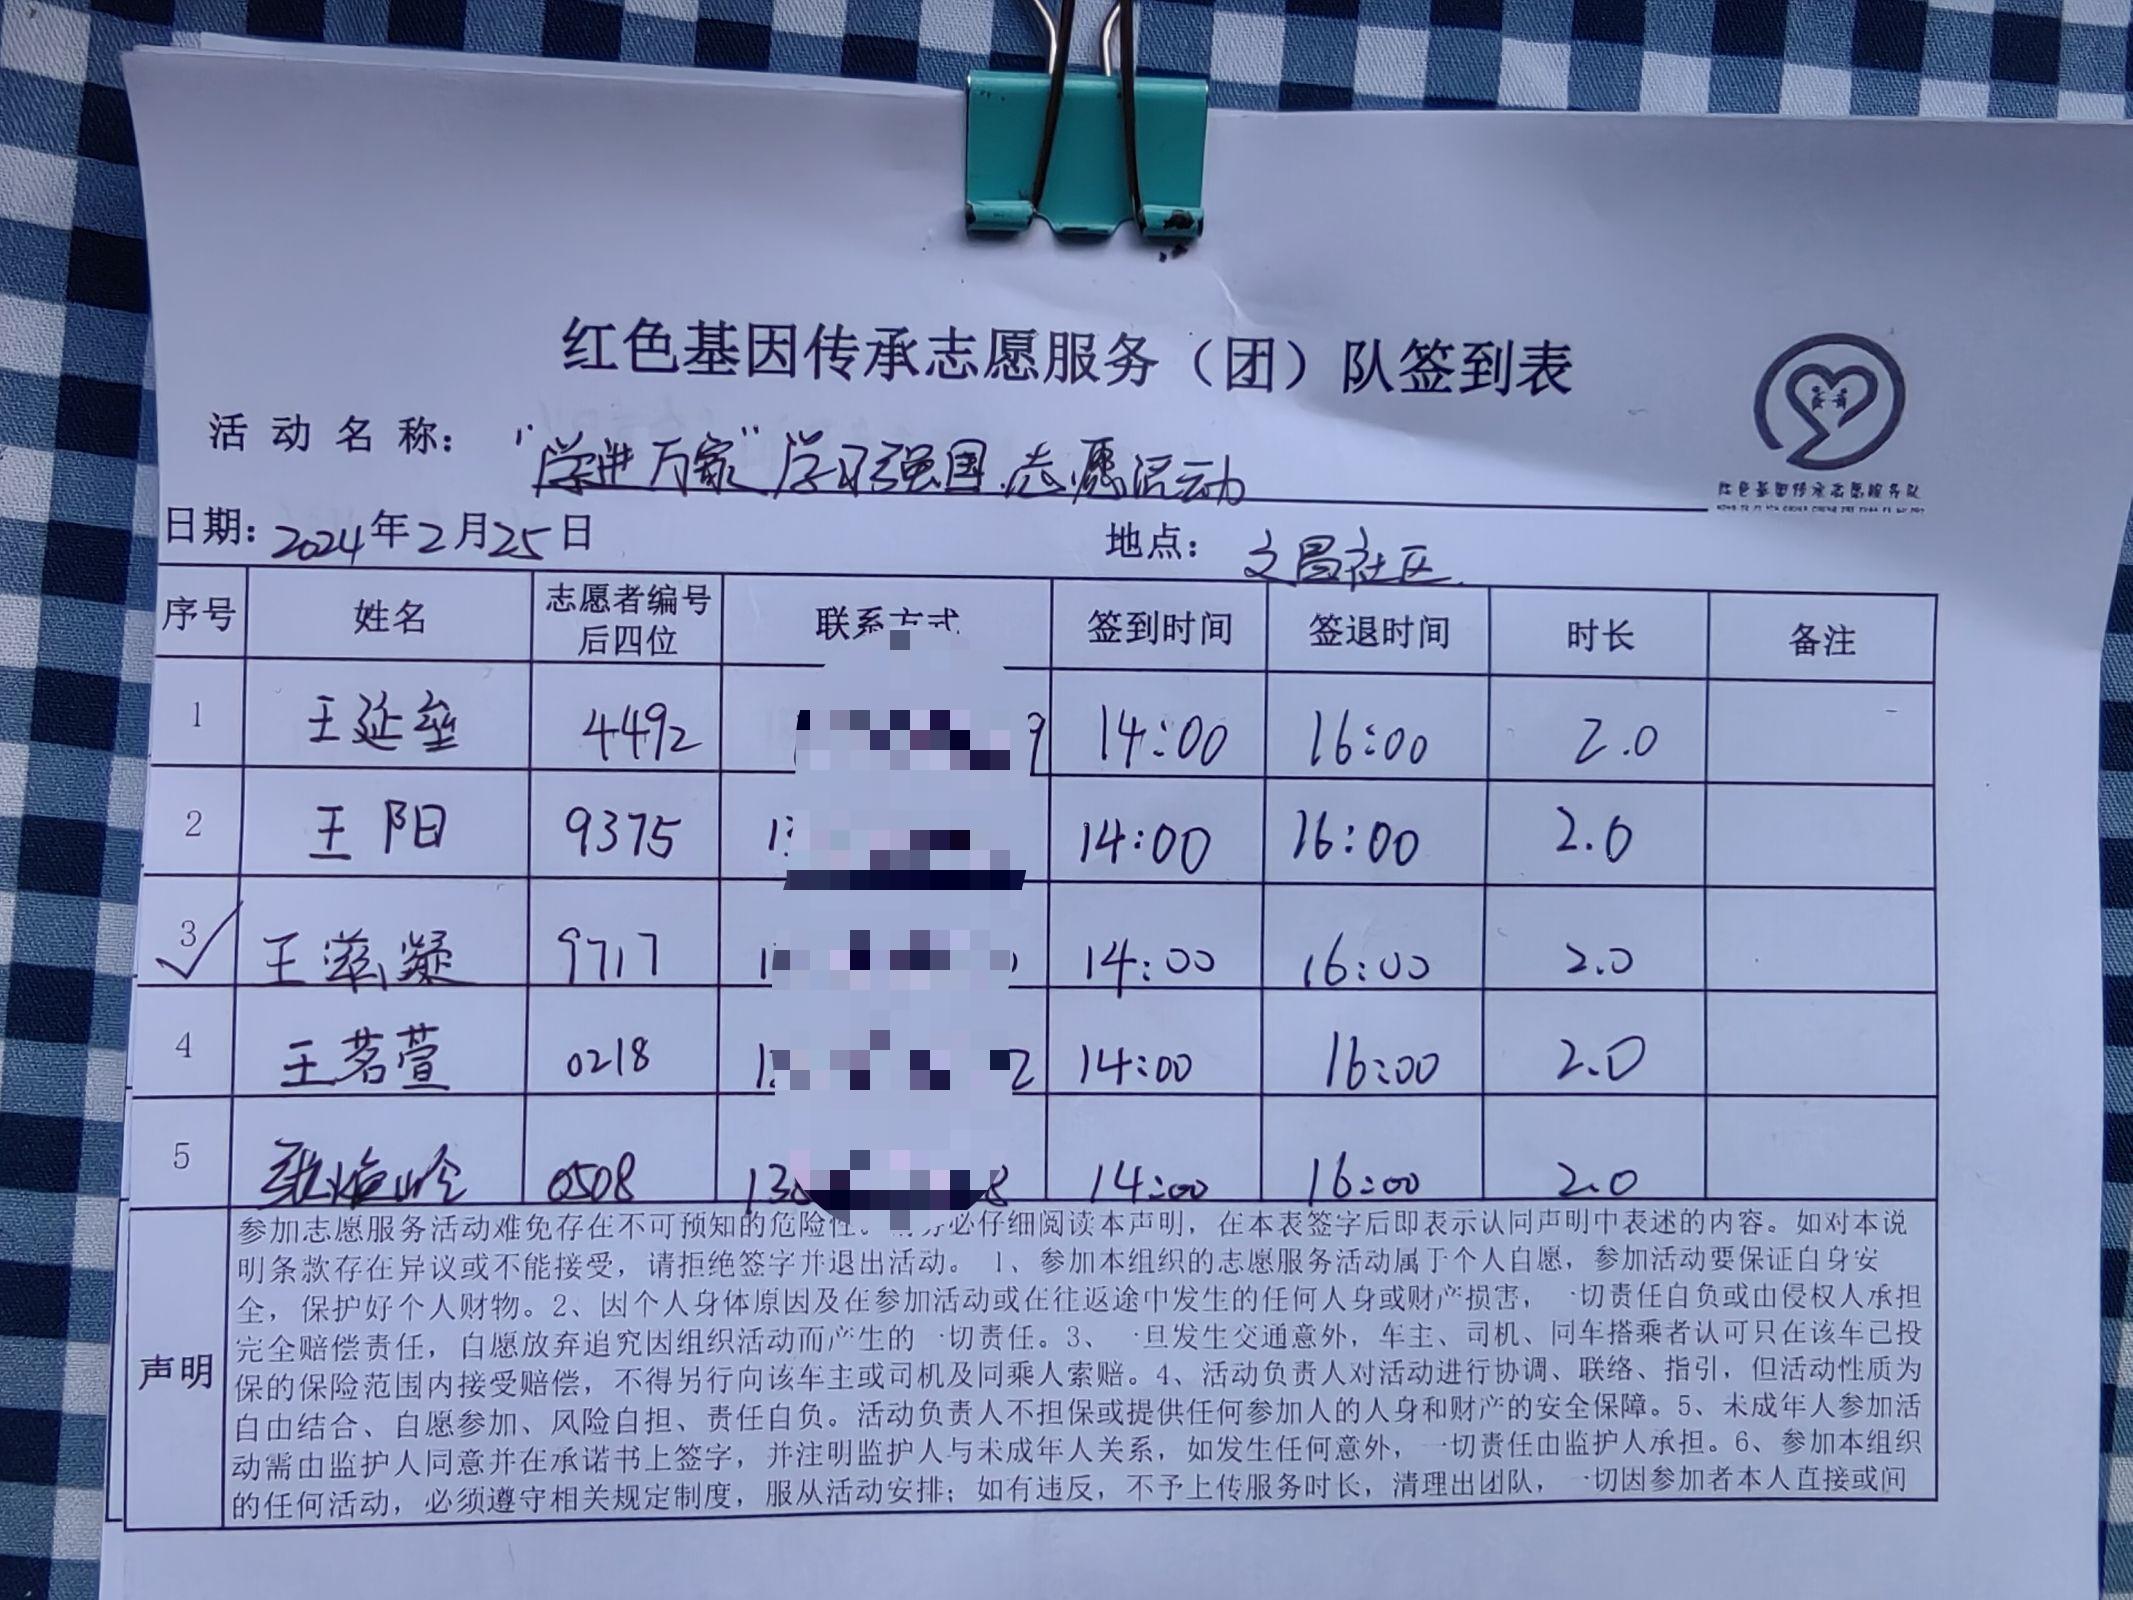 红色基因传承志愿服务（团）队签到表
活动名称： “学进万家”学习强国志愿活动
红色基因传承志愿服务队
日期：2024年2月25日 地点：文昌社区
序号 姓名 志愿者编号后四位 联系方式 签到时间 签退时间 时长 备注
1 王延垒 4492 9 14:00 16:00 2.0
2 王阳 9375 13 14:00 16:00 2.0
3 王滋凝 9717 1 14:00 16:00 2.0
4 王茗萱 0218 1 2 14:00 16:00 2.0
5 0508 13 8 14:00 16:00 2.0
声明
参加志愿服务活动难免存在不可预知的危险性。请务必仔细阅读本声明，在本表签字后即表示认同声明中表述的内容。如对本说
明条款存在异议或不能接受，请拒绝签字并退出活动。1、参加本组织的志愿服务活动属于个人自愿，参加活动要保证自身安
全，保护好个人财物。2、因个人身体原因及在参加活动或在往返途中发生的任何人身或财产损害，一切责任自负或由侵权人承担
完全赔偿责任，自愿放弃追究因组织活动而产生的一切责任。3、一旦发生交通意外，车主、司机、同车搭乘者认可只在该车已投
保的保险范围内接受赔偿，不得另行向该车主或司机及同乘人索赔。4、活动负责人对活动进行协调、联络、指引，但活动性质为
自由结合、自愿参加、风险自担、责任自负。活动负责人不担保或提供任何参加人的人身和财产的安全保障。5、未成年人参加活
动需由监护人同意并在承诺书上签字，并注明监护人与未成年人关系，如发生任何意外，一切责任由监护人承担。6、参加本组织
的任何活动，必须遵守相关规定制度，服从活动安排；如有违反，不予上传服务时长，清理出团队，一切因参加者本人直接或间